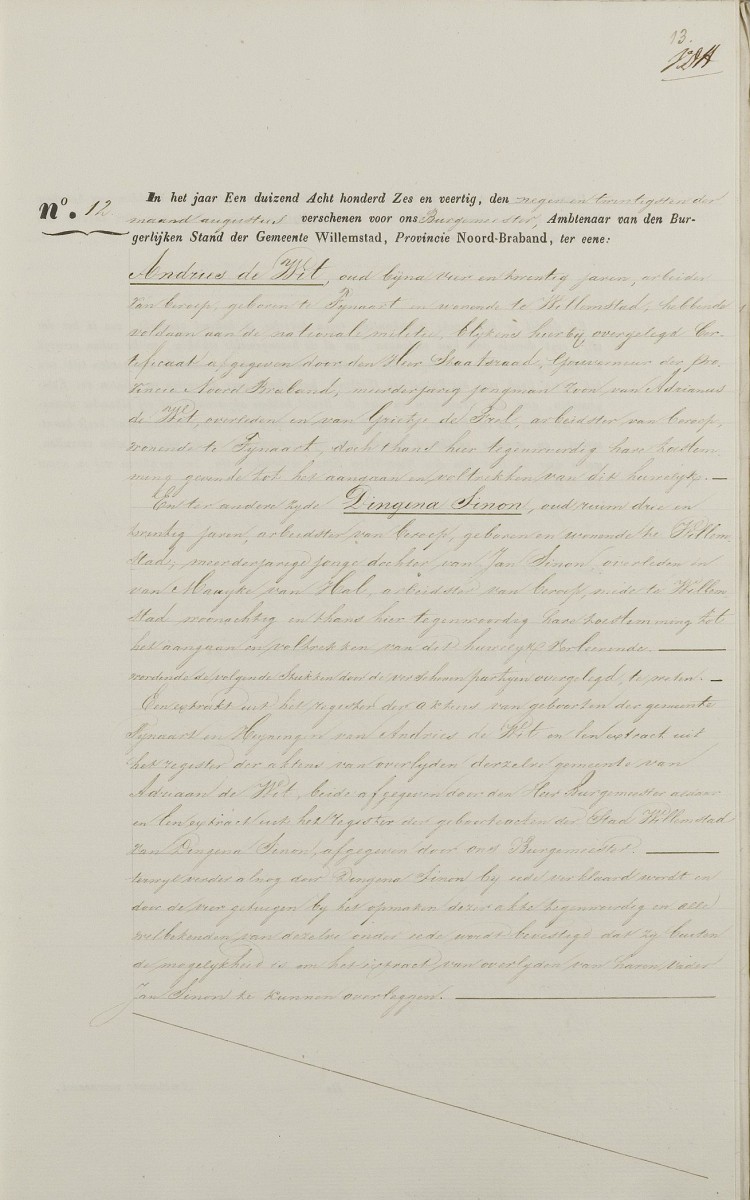 13.
No. 12
In het jaar Een duizend Acht honderd Zes en veertig, den negen en twentigsten der
maand augustus verschenen voor ons Burgemeester, Ambtenaar van den Bur-
gerlijken Stand der Gemeente Willemstad, Provincie Noord-Braband, ter eene:
Andries de Wit, oud bijna vier en twentig jaren, arbeider
van beroep, geboren te Fijnaart en wonende te Willemstad, hebbende
voldaan aan de nationale militie, blijkens hierbij overgelegd Cer-
tificaat afgegeven door den Heer Staatsraad, Gouverneur der Pro-
vincie Noord Braband, meerderjarig jongman zoon van Adrianus
de Wit, overleden en van Grietje de Prel, arbeidster van beroep,
wonende te Fijnaart, doch thans hier tegenwoordig hare toestem-
ming gevende tot het aangaan en voltrekken van dit huwelijk. —
En ter andere zijde Dingena Sinon, oud ruim drie en
twentig jaren, arbeidster van beroep, geboren en wonende te Willem-
stad, meerderjarige jonge dochter van Jan Sinon, overleden en
van Maayke van Hal, arbeidster van beroep, mede te Willem-
stad woonachtig en thans hier tegenwoordig hare toestemming tot
het aangaan en voltrekken van dit huwelijk verleenende. —
wordende de volgende stukken door de verschenen partijen overgelegd, te weten. —
Een extrakt uit het register der aktens van geboorten der gemeente
Fijnaart en Heijningen van Andries de Wit en een extract uit
het register der aktens van overlijden derzelve gemeente van
Adriaan de Wit, beide afgegeven door den Heer Burgemeester aldaar
en een extract uit het register der geboorteacten der Stad Willemstad
van Dingena Sinon, afgegeven door ons Burgemeester. —
terwijl verder alnog door Dingena Sinon bij eede verklaard wordt en
door de vier getuigen bij het opmaken dezer akte tegenwoordig en alle
welbekenden van dezelve onder eede wordt bevestigd dat zij buiten
de mogelijkheid is om het extract van overlijden van haren vader
Jan Sinon te kunnen overleggen. —